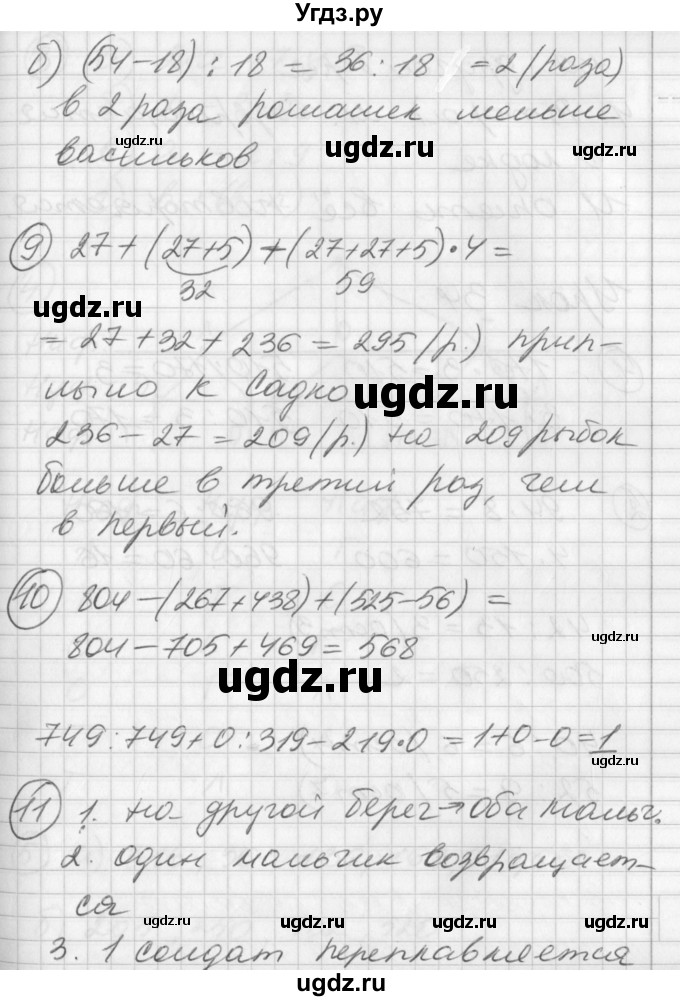 Угдз.ру
б) (54-18) : 18 = 36 : 18 = 2 (раза)
в 2 раза ромашек меньше
васильков
ugdz.ru
ugdz.ru
⑨ 27 + (27+5) + (27+27+5)·4 =
32 59
ugdz.ru
= 27 + 32 + 236 = 295 (р.) прип-
лыло к Садко
ugdz.ru
236 - 27 = 209 (р.) на 209 рыбок
больше в третий раз, чем
в первый.
ugdz.ru
ugdz.ru
⑩ 804 - (267+438) + (525-56) =
ugdz.ru
804 - 705 + 469 = 568
ugdz.ru
749 : 749 + 0 : 319 - 219·0 = 1+0-0=1
ugdz.ru
⑪ 1. на другой берег → оба мальч.
2. один мальчик возвращает-
ся
ugdz.ru
ugdz.ru
ugdz.ru
3. 1 солдат переплавляется
ugdz.ru